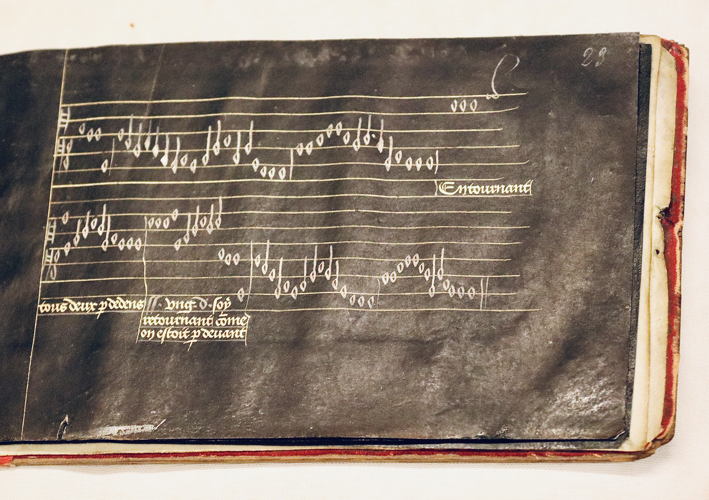 29
En tournant
tous deux p dedens
vng d soy
retournant cōme
on estoit p deuant